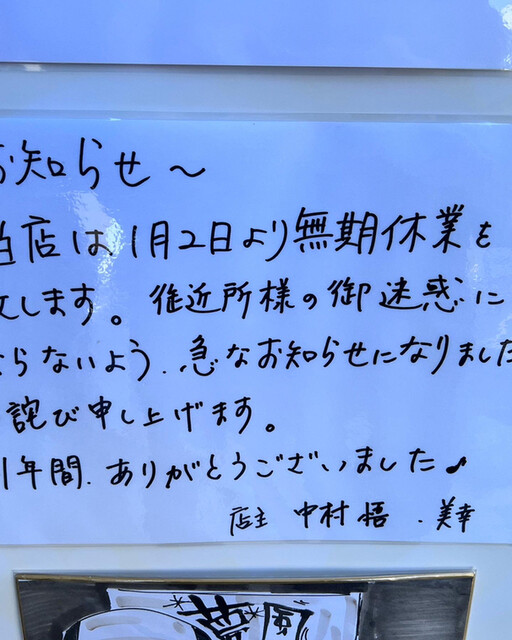 お知らせ～
当店は、1月2日より無期休業を
致します。御近所様の御迷惑に
ならないよう、急なお知らせになりました
詫び申し上げます。
1年間、ありがとうございました♪
店主 中村悟・美幸
風
夢